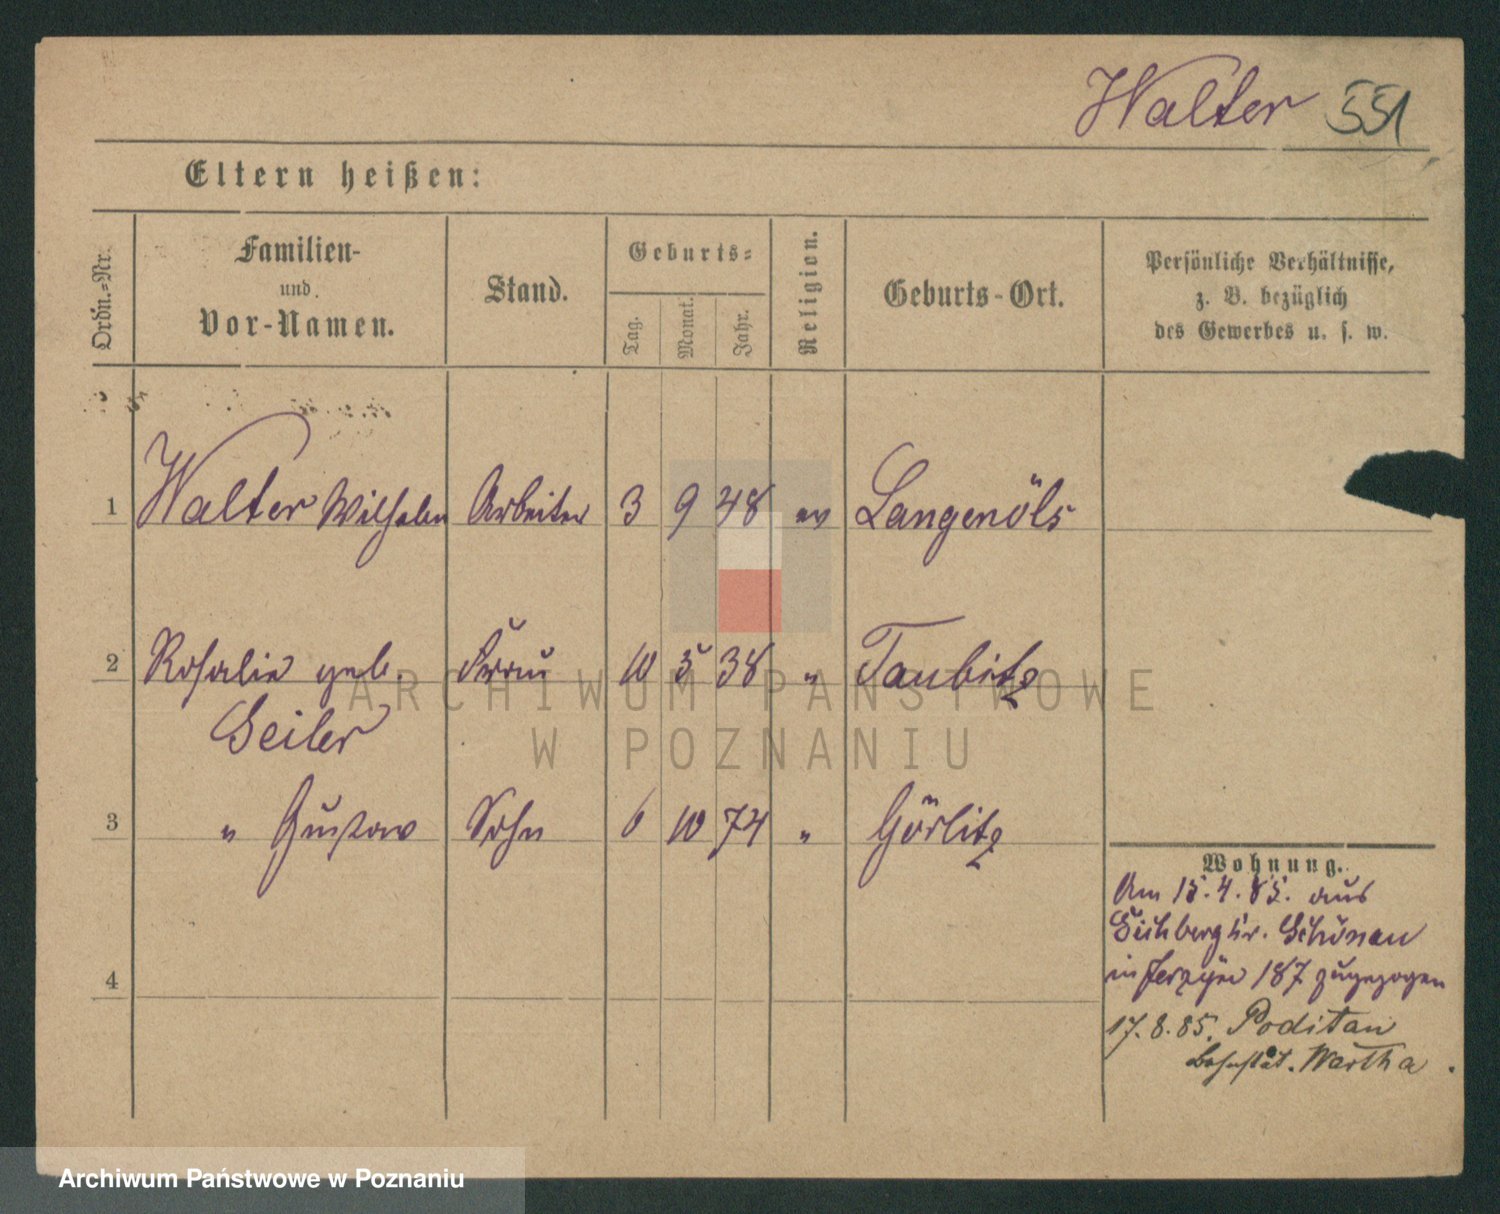 Walter 551
Eltern heißen:
Ordn.-Nr.
Familien-
und
Vor-Namen.
Stand.
Geburts-
Tag.
Monat.
Jahr.
Religion.
Geburts-Ort.
Persönliche Verhältnisse,
z. B. bezüglich
des Gewerbes u. s. w.
1 Walter Wilhelm Arbeiter 3 9 48 ev Langenöls
2 Rosalie geb. Frau 10 5 38 " Taubitz
Seiler
3 " Gustav Sohn 6 10 74 " Görlitz
4
Wohnung.
Am 15.4.85. aus
Kr. Schönau
in Jerzyce 187 zugezogen
17.8.85. Poditau
Bahnstat. Wartha.
ARCHIWUM PAŃSTWOWE
W POZNANIU
Archiwum Państwowe w Poznaniu